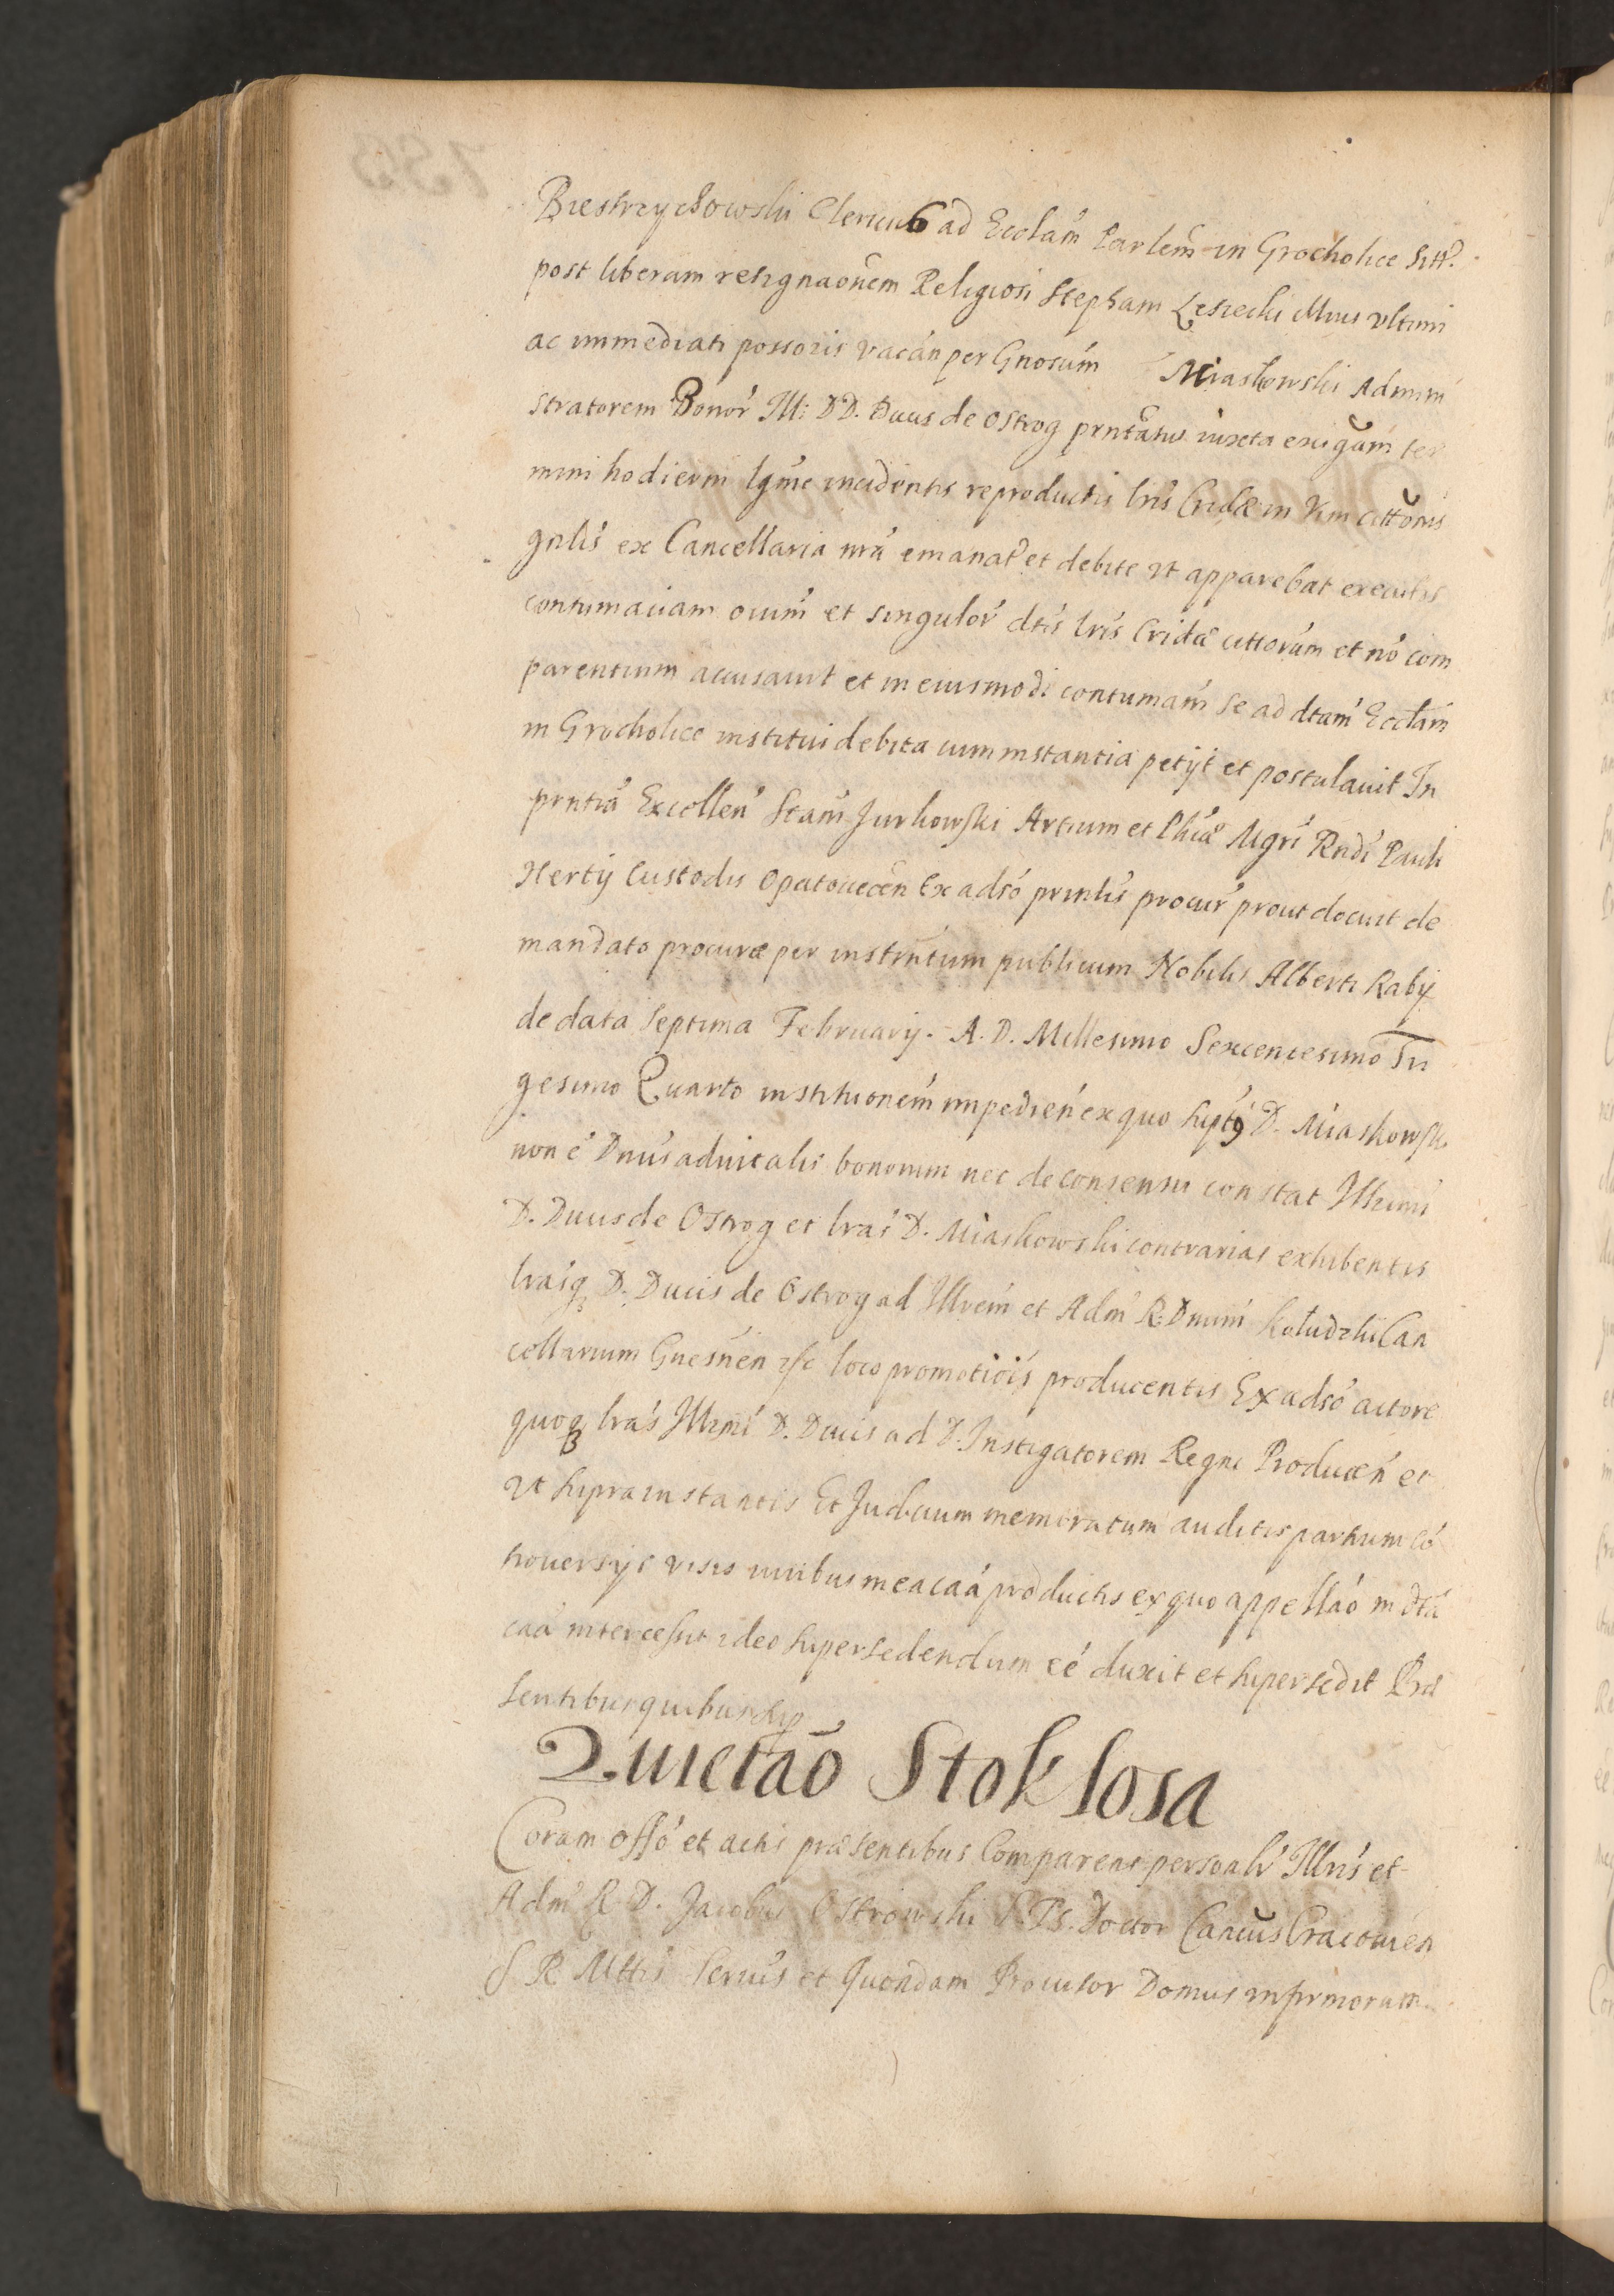 Biestrzychowski Clericus ad Ecclam Parlem in Grocholice sitt.
post liberam resignaonem Religiosi Stephani Lesiecki illius vltimi
ac immediati possoris vacan per Gnosum Miaskowski Admini
stratorem Bonor Illi DD. Ducis de Ostrog prntatus iuxta exigam ter
mini hodierni lgme incidentis reproductis lris Cridæ in vim citt̃onis
gnlis ex Cancellaria nra emanat et debite vt apparebat executis
contumaciam oium et singulor dtis lris Cridæ cittorum et no com
parentium accusauit et in eiusmodi contumam se ad dtam Ecclam
in Grocholice institui debita cum instantia petÿt et postulauit In
prntia Excellen Stani Jurkowski Artium et Phiæ Mgri Rndi Pauli
Hertÿ Custodis Opatouecen Ex adso prnlis procur prout docuit de
mandato procuræ per instrntum publicum Nobilis Alberti Rabÿ
de data Septima Februarÿ. A. D. Millesimo Sexcentesimo Tri
gesimo Quarto institutionem impedien ex quo supt9 D. Miaskowski
non e Dnus aduitalis bonorum nec de consensu constat Illrimi
D. Ducis de Ostrog et lras D. Miaskowski contrarias exhibentis
lrasq D. Ducis de Ostrog ad Illrem et Adm R. Dnum Kołudzki Can
cellarium Gnesnen loco promotiois producentis Ex adso actore
quoq lras Illrimi D. Ducis ad D. Instigatorem Regni Producen et
vt supra instantis Et Judicium memoratum auditis partium co
trouersÿs visis iuribus in ea caa productis ex quo appellao in dta
caa intercessit ideo supersedendum ee duxit et supersedit Præ
sentibus quibus sup
Quietaō Stoklosa
Coram offo et actis præsentibus Comparens personlr Illris et
Adm R. D. Jacobus Ostrowski Doctor Cancus Cracouien
S. R. Mttis Secrius et Quondam Prouisor Domus infirmorum